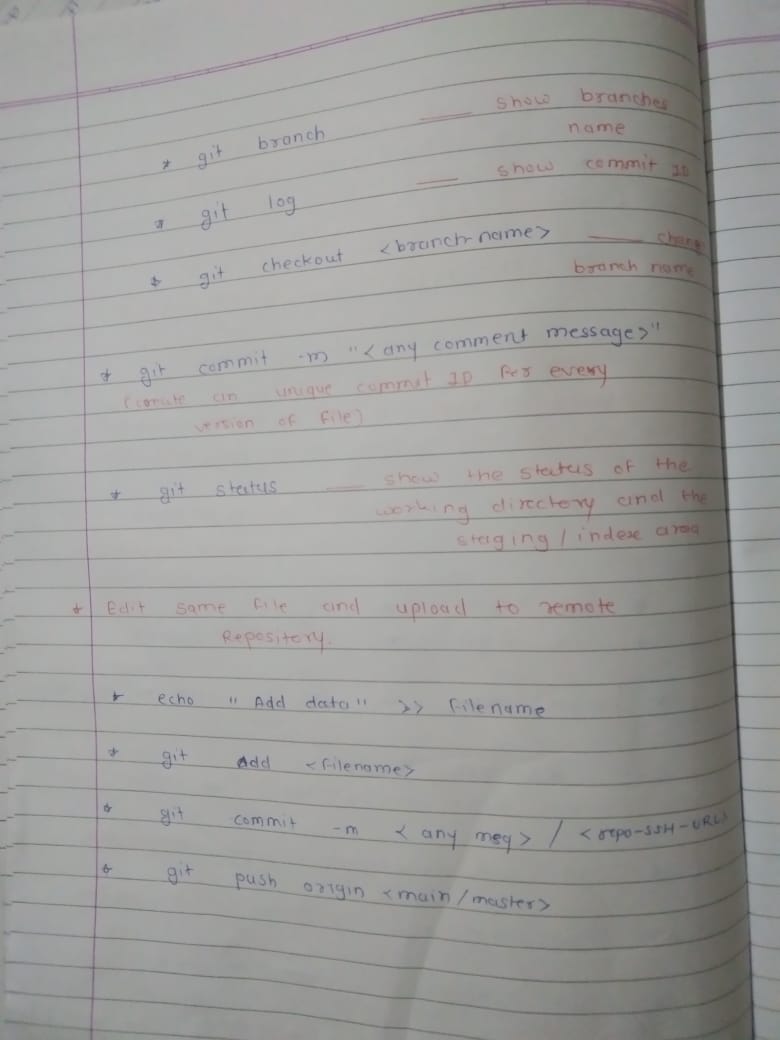 * git branch —— show branches
name
* git log —— show commit ID
* git checkout <branch-name> —— chang
branch name
* git commit -m "<any comment message>"
(create an unique commit ID for every
version of file)
* git status —— show the status of the
working directory and the
staging / index area
* Edit same file and upload to remote
Repository.
* echo "Add data" >> filename
* git add <filename>
* git commit -m < any msg > / <repo-SSH-URL>
* git push origin <main/master>